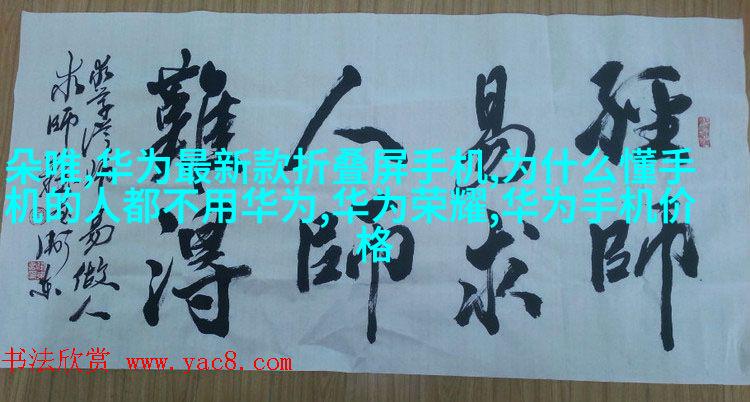 經師
易求
人師
難得
朵唯,华为最新款折叠屏手机,为什么懂手
机的人都不用华为,华为荣耀,华为手机价
格
书法欣赏 www.yac8.com